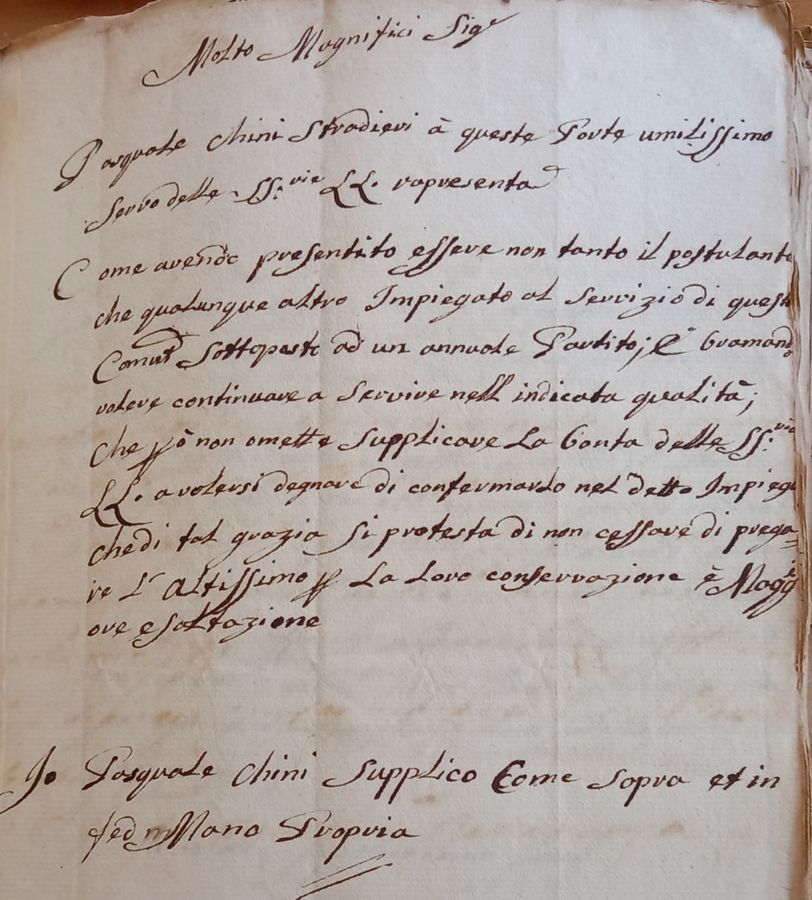 Molto Magnifici Sig.ri
Pasquale Chini Stradieri à queste Porte umilissimo
Servo delle SS.rie LL. rapresenta
Come avendo presentito essere non tanto il postulante
che qualunque altro Impiegato al Servizio di questa
Comu.tà Sottoposto ad un annuale Partito; E' bramando
volere continuare a Servire nell'indicata qualità;
che p ò non omette Supplicare La bonta delle SS.rie
LL. a volersi degnare di confermarlo nel detto Impiego
che di tal grazia si protesta di non cessare di prega=
re L'Altissimo p La Loro conservazione è Magg.i
ore esaltazione
Io Pasquale Chini Supplico Come sopra et in
fed Mano Propria